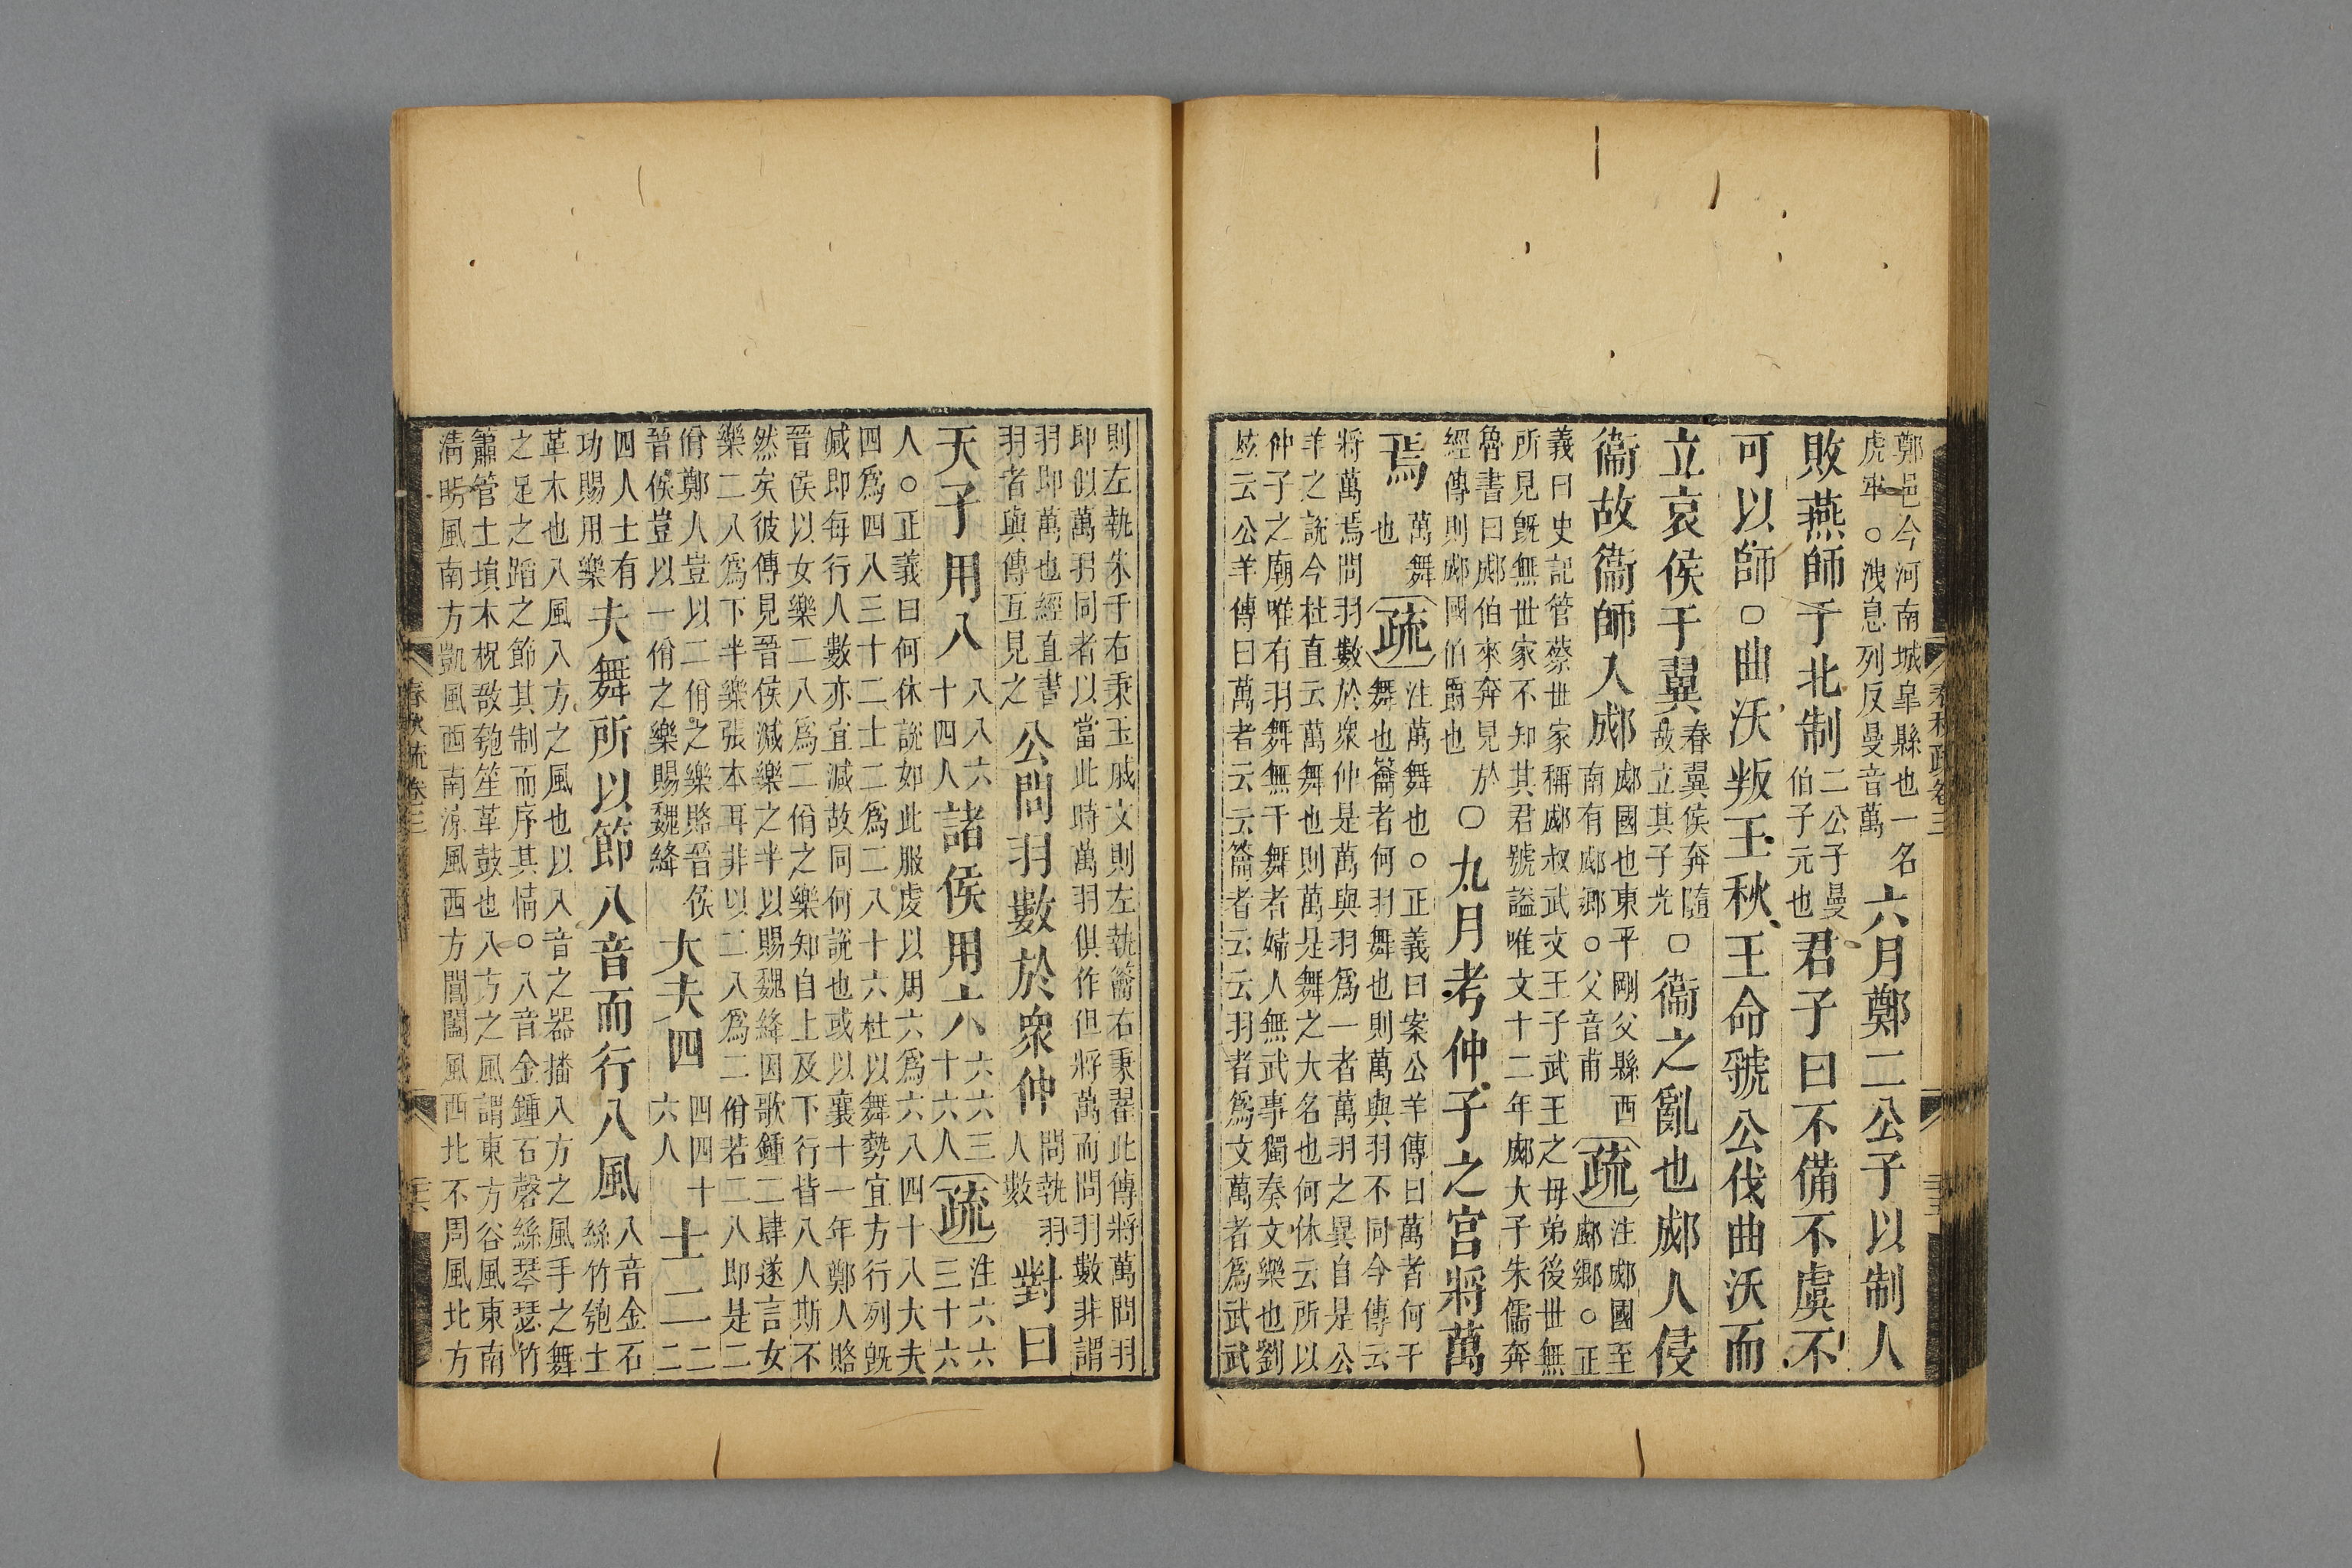 鄭邑今河南城皐縣也一名
虎牢○洩息列反曼音萬
六月鄭二公子以制人
敗燕師于北制
二公子曼
伯子元也
君子曰不備不虞不
可以師○曲沃叛王秋王命虢公伐曲沃而
立哀侯于翼
春翼侯奔隨
故立其子光
○衞之亂也郕人侵
衞故衞師入郕
郕國也東平剛父縣西
南有郕鄉○父音甫
疏
注郕國至
郕鄉○正
義曰史記管蔡世家稱郕叔武文王子武王之母弟後世無
所見旣無世家不知其君號謚唯文十二年郕大子朱儒奔
魯書曰郕伯來奔見於
經傳則郕國伯爵也
○九月考仲子之宮將萬
焉
萬舞
也
疏
注萬舞也○正義曰案公羊傳曰萬者何干
舞也籥者何羽舞也則萬與羽不同今傳云
將萬焉問羽數於衆仲是萬與羽爲一者萬羽之異自是公
羊之說今杜直云萬舞也則萬是舞之大名也何休云所以
仲子之廟唯有羽舞無干舞者婦人無武事獨奏文樂也劉
炫云公羊傳曰萬者云云籥者云云羽者爲文萬者爲武武
春秋疏卷三
則左執朱干右秉玉戚文則左執籥右秉翟此傳將萬問羽
即似萬羽同者以當此時萬羽俱作但將萬而問羽數非謂
羽即萬也經直書
羽者與傳互見之
公問羽數於衆仲
問執羽
人數
對曰
天子用八
八八六
十四人
諸侯用六
六六三
十六人
疏
注六六
三十六
人○正義曰何休說如此服虔以用六爲六八四十八大夫
四爲四八三十二士二爲二八十六杜以舞勢宜方行列旣
減即每行人數亦宜減故同何說也或以襄十一年鄭人賂
晉侯以女樂二八爲二佾之樂知自上及下行皆八人斯不
然矣彼傳見晉侯減樂之半以賜魏絳因歌鍾二肆遂言女
樂二八爲下半樂張本耳非以二八爲二佾若二八即是二
佾鄭人豈以二佾之樂賂晉侯
晉侯豈以一佾之樂賜魏絳
大夫四
四四十
六人
士二
二二
四人士有
功賜用樂
夫舞所以節八音而行八風
八音金石
絲竹匏土
革木也八風八方之風也以八音之器播八方之風手之舞
之足之蹈之節其制而序其情○八音金鍾石磬絲琴瑟竹
簫管土塤木柷敔匏笙革鼓也八方之風謂東方谷風東南
清明風南方凱風西南凉風西方閶闔風西北不周風北方
春秋疏卷三